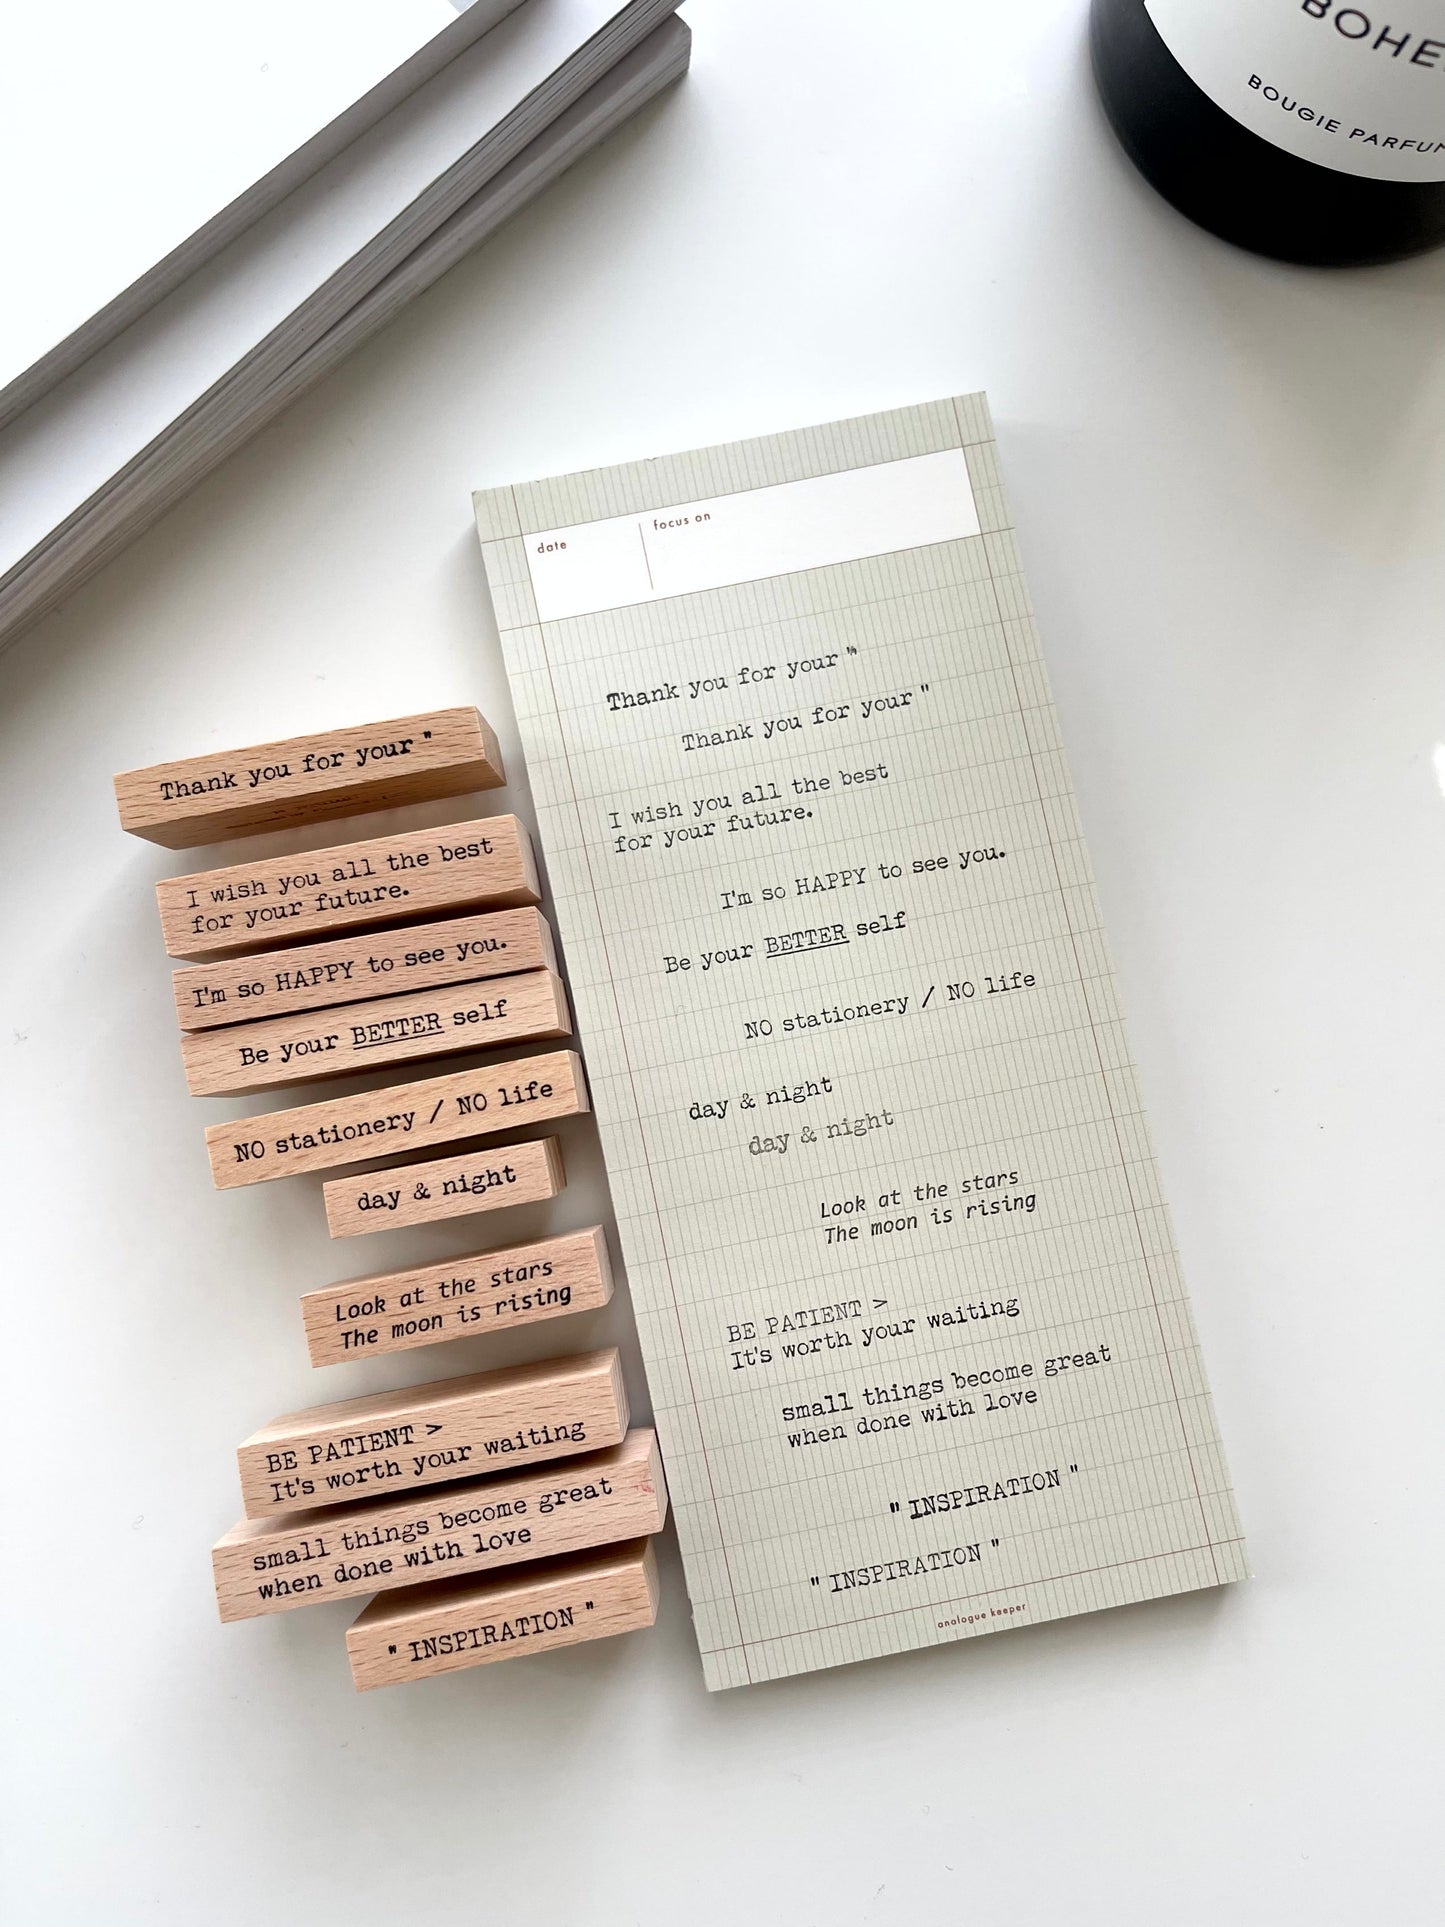 BOUGIE
date
focus on
Thank you for your "
Thank you for your "
I wish you all the best
for your future.
I'm so HAPPY to see you.
Be your BETTER self
NO stationery / NO life
day & night
day & night
Look at the stars
The moon is rising
BE PATIENT >
It's worth your waiting
small things become great
when done with love
" INSPIRATION "
" INSPIRATION "
analogue keeper
Thank you for your "
I wish you all the best
for your future.
I'm so HAPPY to see you.
Be your BETTER self
NO stationery / NO life
day & night
Look at the stars
The moon is rising
BE PATIENT >
It's worth your waiting
small things become great
when done with love
" INSPIRATION "